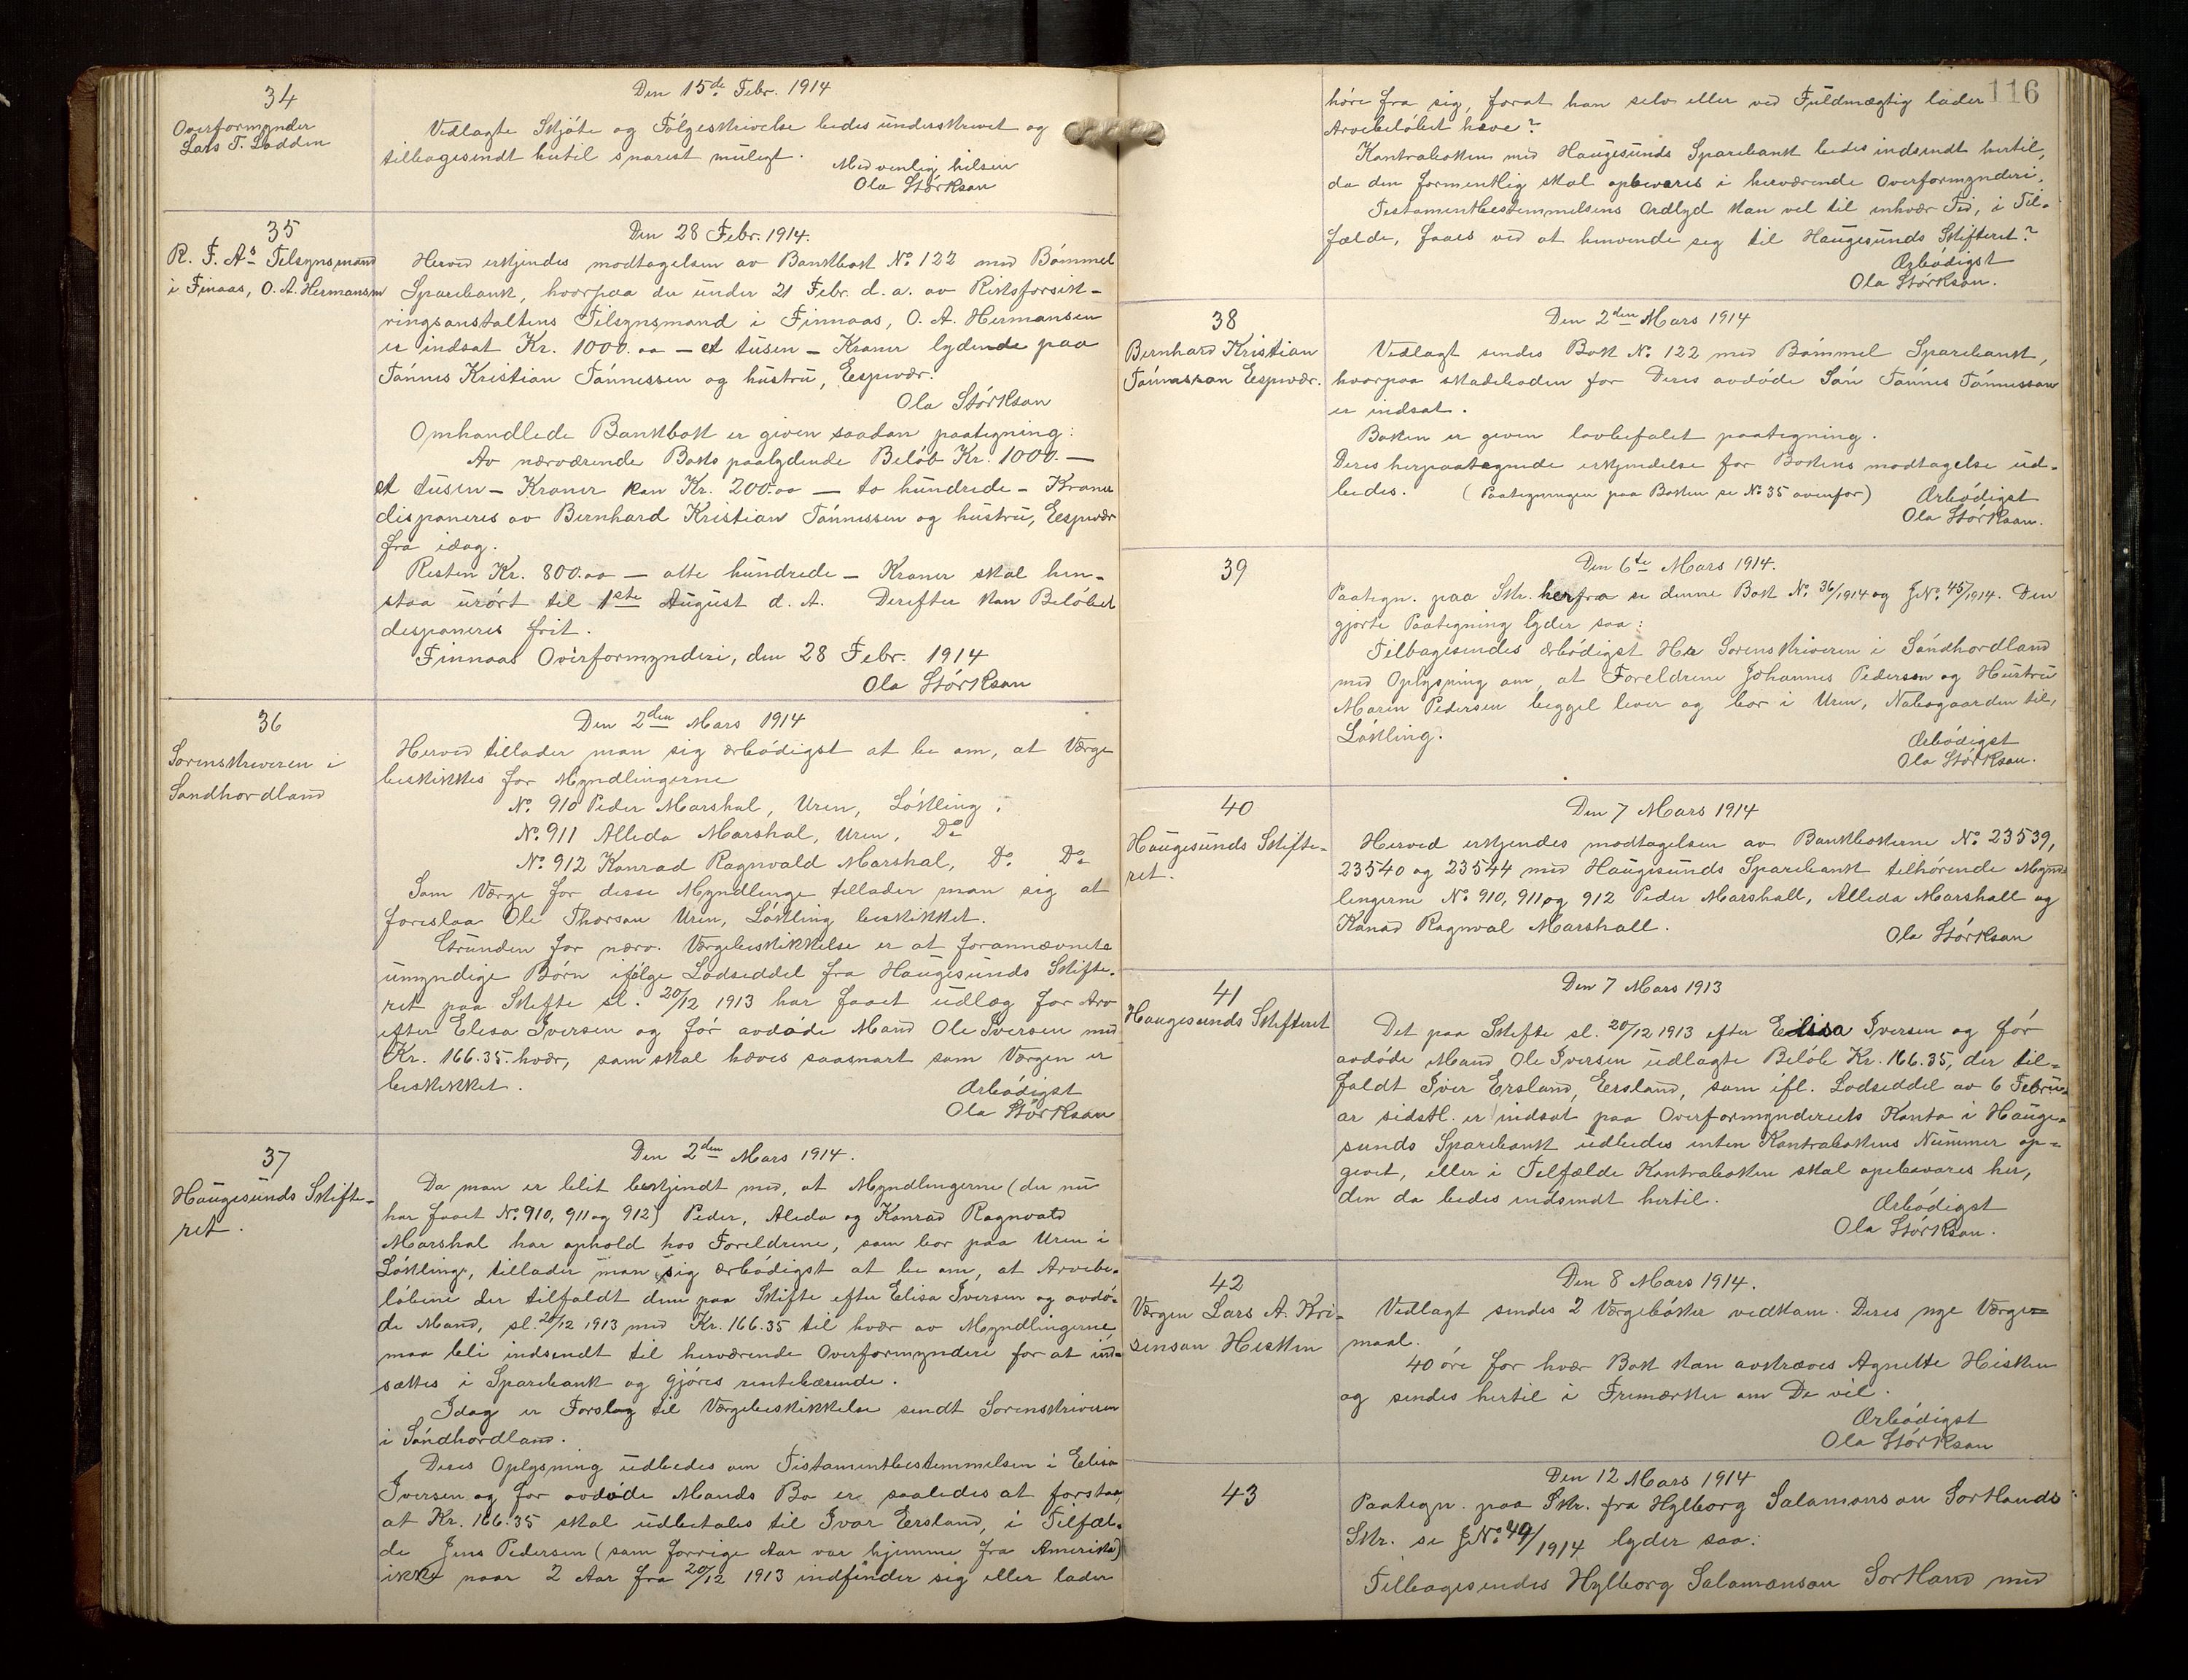 34
Overformynder
Lars T. Lodden
Den 15de Febr. 1914
Vedlagte Skjöte og Fölgeskrivelse bedes underskrevet og
tilbagesendt hertil snarest muligt.
Med venlig hilsen
Ola Störkson
35
R. F. As Tilsynsmand
i Finaas, O. A. Hermansen
Den 28 Febr. 1914.
Herved erkjendes modtagelsen av Bankbok No. 122 med Bömmel
Sparebank, hvorpaa der under 21 Febr. d. a. av Riksforsik-
ringsanstaltens Tilsynsmand i Finnaas, O. A. Hermansen
er indsat Kr. 1000.00 — et tusen — Kroner lydende paa
Tönnes Kristian Tönnessen og hustru, Espevær.
Ola Störkson
Omhandlede Bankbok er given saadan paategning:
Av nærværende Boks paalydende Belöb Kr. 1000.—
et tusen — Kroner kan Kr. 200.00 — to hundrede — Kroner
disponeres av Bernhard Kristian Tönnessen og hustru, Espevær
fra idag.
Resten Kr. 800.00 — otte hundrede — Kroner skal hen-
staa urört til 1ste August d. A. Derefter kan Belöbet
disponeres frit.
Finnaas Overformynderi, den 28 Febr. 1914
Ola Störkson
36
Sorenskriveren i
Söndhordland
Den 2den Mars 1914
Herved tillader man sig ærbödigst at be om, at Værge
beskikkes for Myndlingerne
No. 910 Peder Marshal, Uren, Lökling.
No. 911 Alleda Marshal, Uren, Do
No. 912 Konrad Ragnvald Marshal, Do. Do
Som Værge for disse Myndlinge tillader man sig at
foreslaa Ole Thorson Uren, Lökling beskikket.
Grunden for nærv. Værgebeskikkelse er at forannævnete
umyndige Börn ifölge Lodseddel fra Haugesunds Skifte-
ret paa Skifte sl. 20/12 1913 har faaet udlæg for Arv
efter Elisa Iversen ogför avdöde Mand Ole Iversen med
Kr. 166.35. hvær, som skal hæves saasnart som Værgen er
beskikket.
Ærbödigst
Ola Störkson
37
Haugesunds Skifte-
ret.
Den 2den Mars 1914.
Da man er blit bekjendt med, at Myndlingerne (der nu
har faaet No. 910, 911 og 912) Peder, Aleda og Konrad Ragnvald
Marshal har ophold hos Foreldrene, som bor paa Uren i
Lökling, tillader man sig ærbödigst at be om, at Arvebe-
löbene der tilfaldt dem paa Skifte efter Elisa Iversen og avdö-
de Mand, sl. 20/12 1913 med Kr. 166.35 til hvær av Myndlingerne,
maa bli indsendt til herværende Overformynderi for at ind-
sættes i Sparebank og gjöres rentebærende.
Idag er Forslag til Værgebeskikkelse sendt Sorenskriveren
i Söndhordland.
Deres Oplysning udbedes om Testamentbestemmelsen i Elisa
Iversen og for avdöde Mands Bo er saaledes at forstaa,
at Kr. 166.35 skal udbetales til Ivar Eersland, i Tilfæl-
de Jens Pedersen (som forrige Aar var hjemme fra Amerika)
ikke naar 2 Aar fra 20/12 1913 indfinder sig eller lader
116
höre fra sig, forat han selv eller ved Fuldmægtig lader
Arvebelöbet hæve?
Kontraboken med Haugesunds Sparebank bedes indsendt hertil,
da den formentlig skal opbevares i herværende Overformynderi.
Testamentbestemmelsens Ordlyd kan vel til enhvær Tid, i Til-
fælde, faaes ved at henvende sig til Haugesunds Skifteret?
Ærbödigst
Ola Störkson.
38
Bernhard Kristian
Tönnesson Espevær.
Den 2den Mars 1914
Vedlagt sendes Bok No. 122 med Bömmel Sparebank,
hvorpaa skadeboden for Deres avdöde Sön Tönnes Tönnesson
er indsat.
Boken er given lovbefalet paategning.
Deres herpaategnede erkjendelse for Bokens modtagelse ud-
bedes. (Paategningen paa Boken se No. 35 ovenfor)
Ærbödigst
Ola Störkson.
39
Den 6te Mars 1914.
Paategn. paa Skr. herfra se denne Bok No. 36/1914 og JNo. 45/1914. Den
gjorte Paategning lyder saa:
Tilbagesendes ærbödigst Her Sorenskriveren i Söndhordland
med Oplysning om, at Foreldrene Johannes Pederson og Hustru
Maren Pedersen begge lever og bor i Uren, Nabogaarden til,
Lökling.
Ærbödigst
Ola Störkson.
40
Haugesunds Skifte-
ret.
Den 7 Mars 1914
Herved erkjendes modtagelsen av Bankbokerne No. 23539,
23540 og 23544 med Haugesunds Sparebank tilhörende Mynd-
lingerne No. 910, 911 og 912 Peder Marshall, Alleda Marshall og
Konrad Ragnval Marshall.
Ola Störkson
41
Haugesunds Skifteret
Den 7 Mars 1913
Det paa Skifte sl. 20/12 1913 efter Elisa Iversen og för
avdöde Mand Ole Iversen udlagte Belöb Kr. 166.35, der til-
faldt Iver Ersland, Eersland, som ifl. Lodseddel av 6 Febru-
ar sidstl. er indsat paa Overformynderiets Konto i Hauge-
sunds Sparebank udbedes enten Kontrabokens Nummer op-
gevet, eller i Tilfælde Kontraboken skal opbevares her,
den da bedes indsendt hertil.
Ærbödigst
Ola Störkson.
42
Værgen Lars A. Kri-
senson Hisken
Den 8 Mars 1914.
Vedlagt sendes 2 Værgeböker vedkom. Deres nye Værge-
maal.
40 öre for hvær Bok kan avkræves Agnette Hisken
og sendes hertil i Frimærker om De vil.
Ærbödigst
Ola Störkson
43
Den 12 Mars 1914
Paategn. paa Skr. fra Hylborg Salamonson Sortlands
Skr. se JNo. 49/1914 lyder saa:
Tilbagesendes Hylborg Salamonson Sortland med